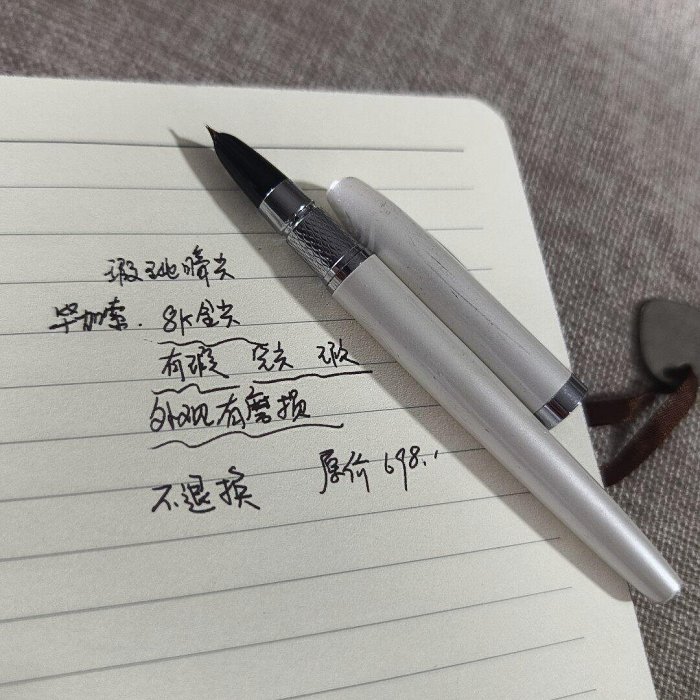 瑕疵暗尖
毕加索. 8K金尖
有瑕 完美
外观有磨损
不退换 原价698.